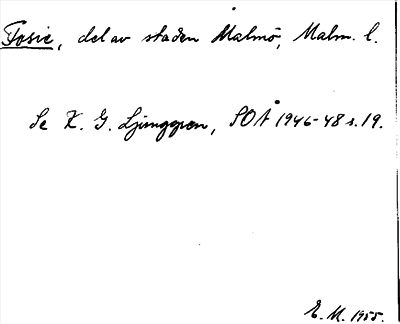 Fosie, del av staden Malmö, Malm. l.
Se K. G. Ljunggren, SOÅ 1946-48 s. 19.
E. M. 1955.